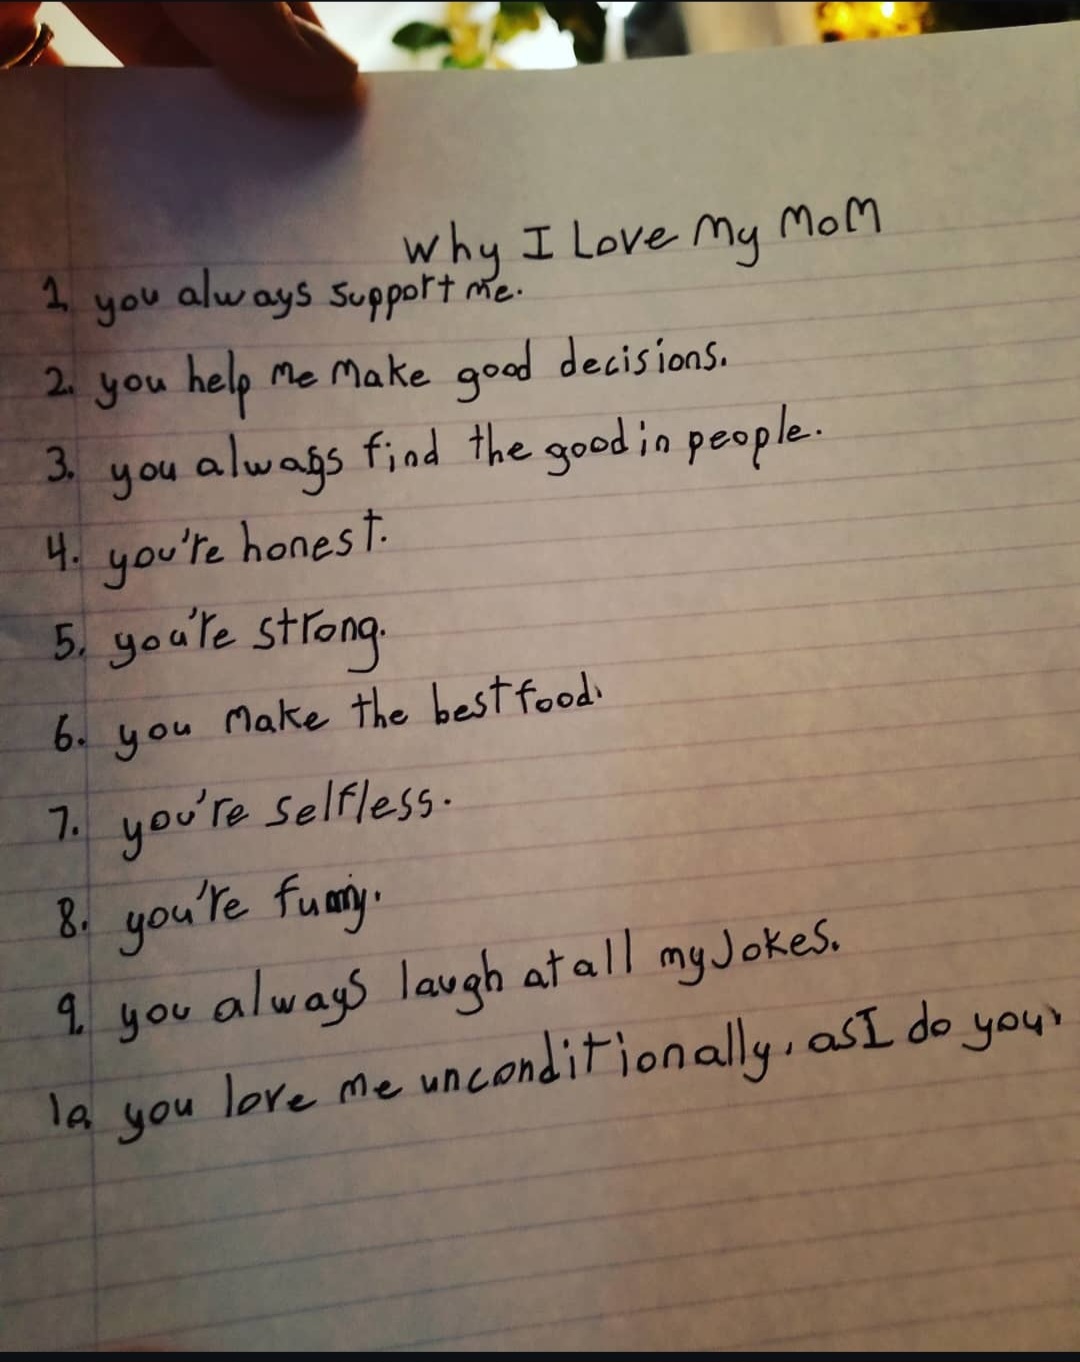 Why I Love My MoM
1. you always support me.
2. you help me make good decisions.
3. you always find the good in people.
4. you're honest.
5. you're strong.
6. you make the best food.
7. you're selfless.
8. you're funny.
9. you always laugh at all my Jokes.
10. you love me unconditionally, as I do you.